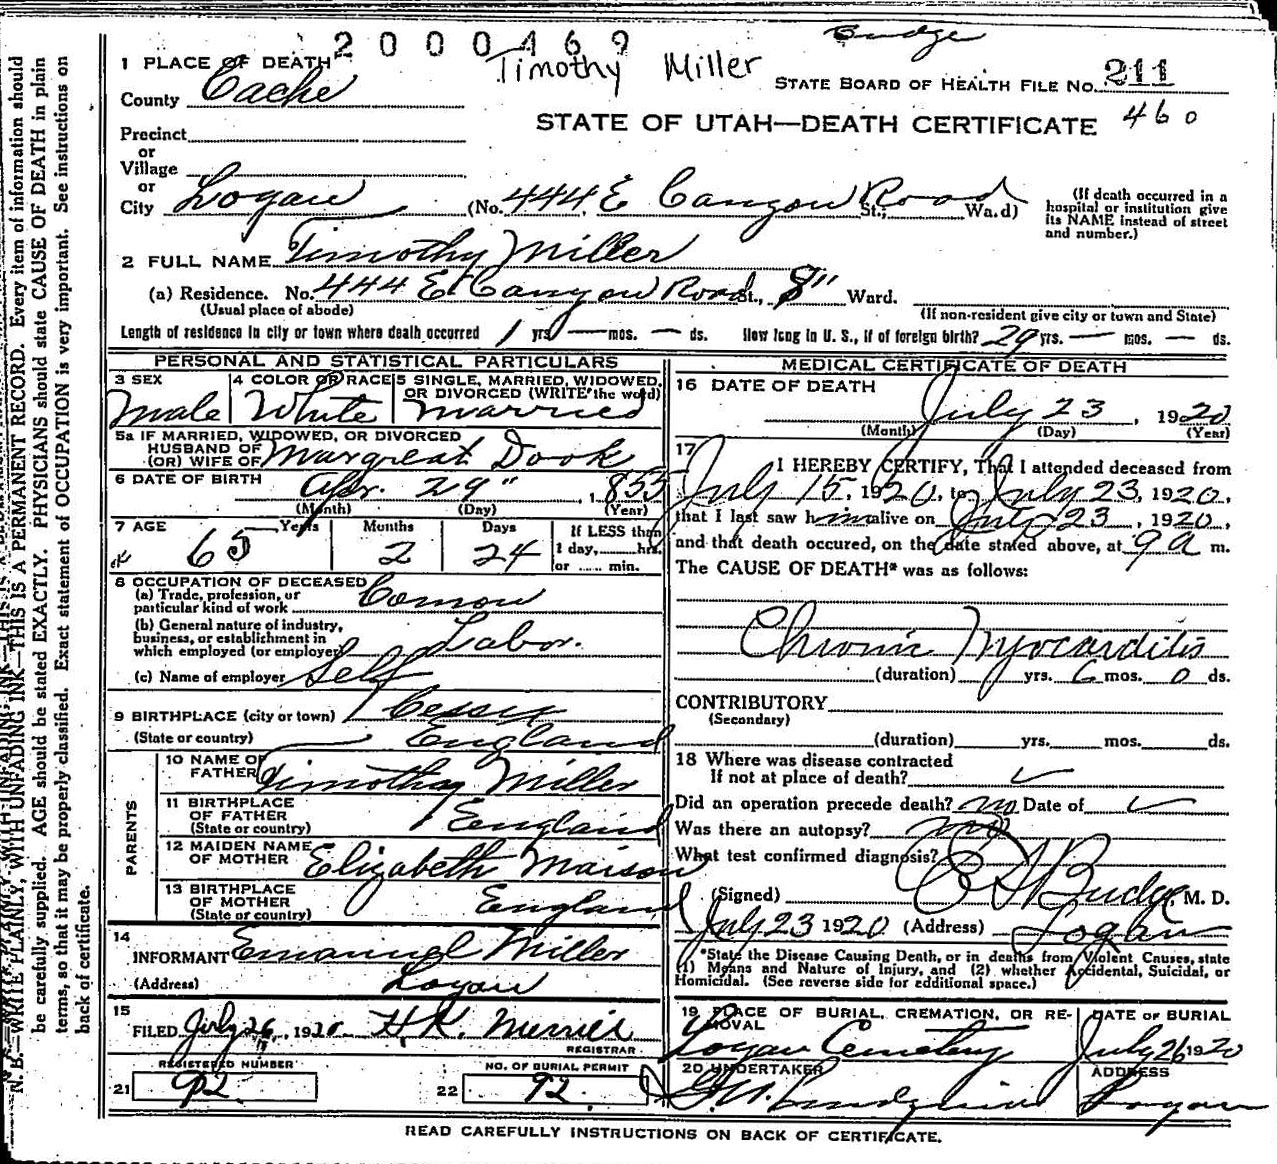 2000469
Budge
Timothy Miller
1 PLACE OF DEATH
STATE BOARD OF HEALTH FILE NO. 211
County Cache
460
STATE OF UTAH—DEATH CERTIFICATE
Precinct
or
Village
or
City Logan (No. 444 E Canyon Road St.; Ward)
(If death occurred in a
hospital or institution give
its NAME instead of street
and number.)
2 FULL NAME Timothy Miller
(a) Residence. No. 444 E Canyon Road St., 8" Ward.
(Usual place of abode)
(If non-resident give city or town and State)
Length of residence in city or town where death occurred 1 yrs — mos. — ds. How long in U. S., if of foreign birth? 29 yrs. — mos. — ds.
PERSONAL AND STATISTICAL PARTICULARS
3 SEX Male
4 COLOR OR RACE White
5 SINGLE, MARRIED, WIDOWED,
OR DIVORCED (WRITE the word)
married
5a IF MARRIED, WIDOWED, OR DIVORCED
HUSBAND OF
(OR) WIFE OF Margreat Dook
6 DATE OF BIRTH Apr. 29" , 1855
(Month) (Day) (Year)
7 AGE Years Months Days
65 2 24
If LESS than
1 day, hrs.
or ...... min.
8 OCCUPATION OF DECEASED
(a) Trade, profession, or
particular kind of work Comon
(b) General nature of industry,
business, or establishment in
which employed (or employer) Labor.
(c) Name of employer Self
9 BIRTHPLACE (city or town)
(State or country) England
PARENTS
10 NAME OF
FATHER Timothy Miller
11 BIRTHPLACE
OF FATHER
(State or country) England
12 MAIDEN NAME
OF MOTHER Elizabeth Maison
13 BIRTHPLACE
OF MOTHER
(State or country) England
14
INFORMANT Emanuel Miller
(Address) Logan
15
FILED July 26, 1920 H.K. Merrill
REGISTRAR
REGISTERED NUMBER
21 92
NO. OF BURIAL PERMIT
22 92
MEDICAL CERTIFICATE OF DEATH
16 DATE OF DEATH
July 23, 1920
(Month) (Day) (Year)
17
I HEREBY CERTIFY, That I attended deceased from
July 15, 1920, to July 23, 1920,
that I last saw him alive on July 23, 1920,
and that death occured, on the date stated above, at 9 a m.
The CAUSE OF DEATH* was as follows:
Chronic Myocarditis
(duration) yrs. 6 mos. 0 ds.
CONTRIBUTORY
(Secondary)
(duration) yrs. mos. ds.
18 Where was disease contracted
If not at place of death? ✓
Did an operation precede death? no Date of ✓
Was there an autopsy? no
What test confirmed diagnosis?
(Signed) Budge, M. D.
July 23 1920 (Address) Logan
*State the Disease Causing Death, or in deaths from Violent Causes, state
(1) Means and Nature of Injury, and (2) whether Accidental, Suicidal, or
Homicidal. (See reverse side for additional space.)
19 PLACE OF BURIAL, CREMATION, OR RE-
MOVAL
Logan Cemetery
DATE OF BURIAL
July 26 1920
20 UNDERTAKER
ADDRESS
Logan
READ CAREFULLY INSTRUCTIONS ON BACK OF CERTIFICATE.
N. B.—WRITE PLAINLY, WITH UNFADING INK—THIS IS A PERMANENT RECORD. Every item of information should
be carefully supplied. AGE should be stated EXACTLY. PHYSICIANS should state CAUSE OF DEATH in plain
terms, so that it may be properly classified. Exact statement of OCCUPATION is very important. See instructions on
back of certificate.